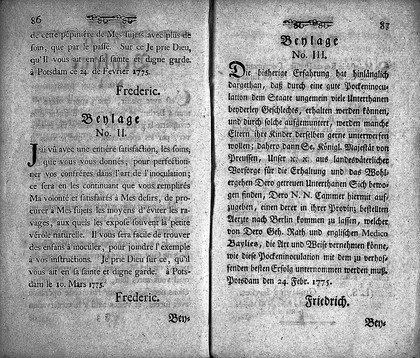 86
de cette pépiniére de Mes sujets avec plus de
soin, que par le passé. Sur ce Je prie Dieu,
qu'Il vous ait en sa sainte et digne garde.
à Potsdam ce 24. de Fevrier 1775.
Frederic.
Beylage
No. II.
J'ai vû avec une entiére satisfaction, les soins,
que vous vous donnés, pour perfectionner
vos confréres dans l'art de l'inoculation;
ce sera en les continuant que vous remplirés
Ma volonté et satisfairés à Mes desirs, de procurer
à Mes sujets les moyens d'éviter les ravages,
aux quels les expose souvent la petite
vérole naturelle. Il vous sera facile de trouver
des enfans à inoculer, pour joindre l'exemple
à vos instructions. Je prie Dieu sur ce, qu'il
vous ait en sa sainte et digne garde. à Potsdam
le 10. Mars 1775.
Frederic.
Bey-
87
Beylage
No. III.
Die bisherige Erfahrung hat hinlänglich
dargethan, daß durch eine gute Pockeninoculation
dem Staate ungemein viele Unterthanen
beyderley Geschlechts, erhalten werden können,
und durch solche aufgemuntert, werden manche
Eltern ihre Kinder derselben gerne unterwerfen
wollen; dahero dann Se. Königl. Majestät von
Preussen, Unser ꝛc. ꝛc. aus landesväterlicher
Vorsorge für die Erhaltung und das Wohlergehen
Dero getreuen Unterthanen Sich bewogen
finden, Dero N. N. Cammer hiermit aufzugeben,
einen derer in ihrer Provinz bestellten
Aerzte nach Berlin kommen zu lassen, welcher
von Dero Geh. Rath und englischen Medico
Baylies, die Art und Weise vernehmen könne,
wie diese Pockeninoculation mit dem zu verhoffenden
besten Erfolg unternommen werden muß.
Potsdam den 24. Febr. 1775.
Friedrich.
Bey-